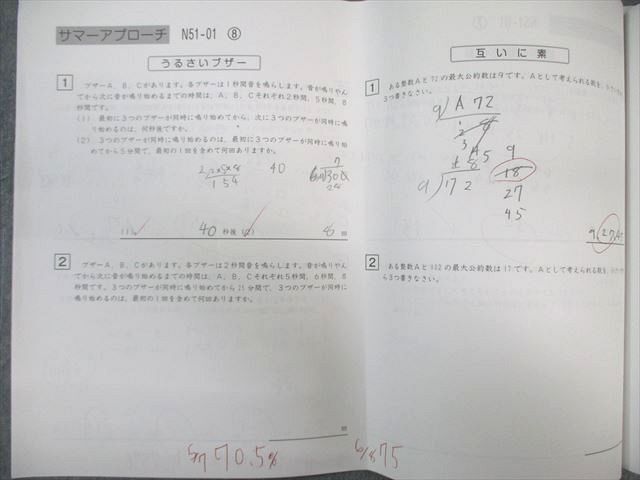 サマーアプローチ N51-01 ⑧
うるさいブザー
1
ブザーA、B、Cがあります。各ブザーは1秒間音を鳴らします。音が鳴りやん
でから次に音が鳴り始めるまでの時間は、A、B、Cそれぞれ2秒間、5秒間、8
秒間です。
(1) 最初に三つのブザーが同時に鳴り始めてから、次に3つのブザーが同時に鳴
り始めるのは、何秒後ですか。
(2) 3つのブザーが同時に鳴り始めるのは、最初に3つのブザーが同時に鳴り始
めてから5分間で、最初の1回を含めて何回ありますか。
40
(1) 40 秒後 (2) 8 回
2
ブザーA、B、Cがあります。各ブザーは2秒間音を鳴らします。音が鳴りやん
でから次に音が鳴り始めるまでの時間は、A、B、Cそれぞれ5秒間、6秒間、8
秒間です。3つのブザーが同時に鳴り始めてから21分間で、3つのブザーが同時に
鳴り始めるのは、最初の1回を含めて何回ありますか。
回
5/7 70.5%
N51-01 ⑧
互いに素
1
ある整数Aと72の最大公約数は9です。Aとして考えられる数を、
3つ書きなさい。
9) A 72
9) 72
9
18
27
45
9, 27,
2
ある整数Aと102の最大公約数は17です。Aとして考えられる数を、
ら3つ書きなさい。
6/8 75